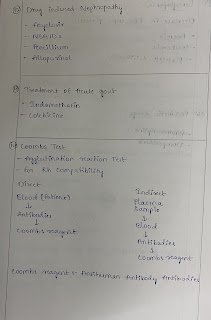 Drug Induced Nephropathy
- Acyclovir
- NSAIDs
- Penicillium
- Allopurinol
Treatment of Acute gout
- Indomethacin
- Colchicine
Coombs Test
- Agglutination reaction Test
- for Rh compatibility
Direct Indirect
Blood (Patient) Plasma
↓ Sample
Antibodies ↓
↓ Blood
Coombs reagent ↓
Antibodies
↓
Coombs reagent
Coombs reagent :- Antihuman Antibody Antibodies